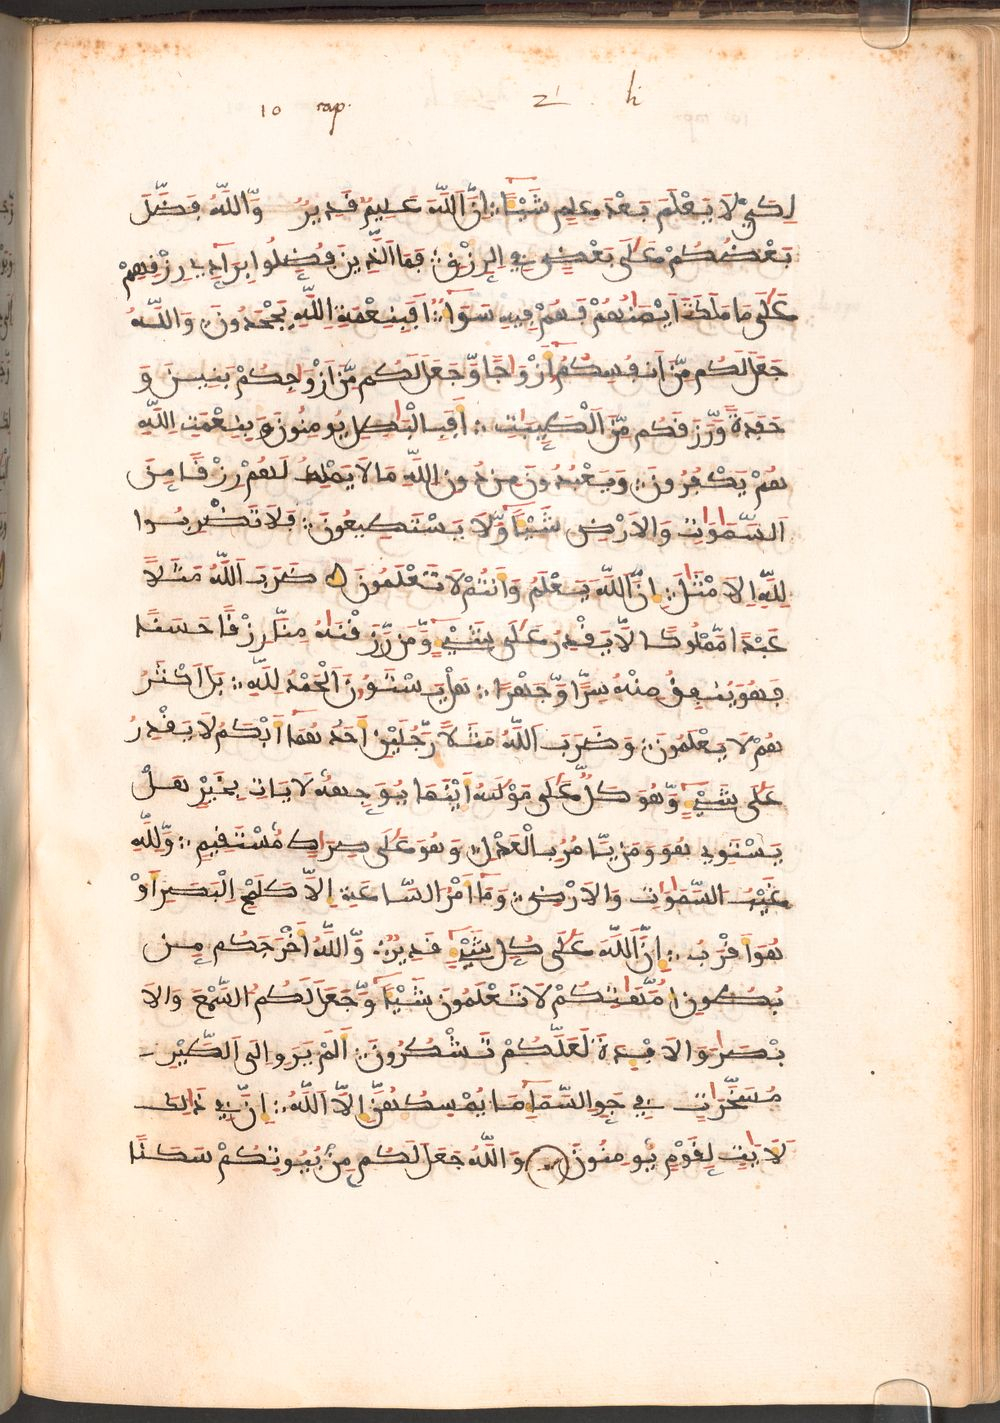 10 rap. 2 li
لِكَيْ لَا يَعْلَمَ بَعْدَ عِلْمٍ شَيْـًٔا ۞ إِنَّ اَللَّهَ عَلِيمٌ قَدِيرٌ وَّاللَّهُ فَضَّلَ
بَعْضَكُمْ عَلَى بَعْضٍ فِي اِلرِّزْقِ ۞ فَمَا اَلَّذِينَ فُضِّلُوا بِرَآدِّي رِزْقِهِمْ
عَلَى مَا مَلَكَتَ اَيْمَٰنُهُمْ فَهُمْ فِيهِ سَوَآءٌ ۞ اَفَبِنِعْمَةِ اِللَّهِ يَجْحَدُونَ ۞ وَاللَّهُ
جَعَلَ لَكُم مِّنَ اَنفُسِكُمُ أَزْوَٰجًا وَّجَعَلَ لَكُم مِّنَ اَزْوَٰجِكُمْ بَنِينَ وَ
حَفَدَةً وَّرَزَقَكُم مِّنَ اَلطَّيِّبَٰتِ ۞ أَفَبِالْبَٰطِلِ يُومِنُونَ وَبِنِعْمَتِ اِللَّهِ
هُمْ يَكْفُرُونَ ۞ وَيَعْبُدُونَ مِن دُونِ اِللَّهِ مَا لَا يَمْلِكُ لَهُمْ رِزْقًا مِنَ
اَلسَّمَٰوَٰتِ وَالَارْضِ شَيْـًٔا وَّلَا يَسْتَطِيعُونَ ۞ فَلَا تَضْرِبُوا
لِلَّهِ اِلَامْثَالَ ۞ إِنَّ اَللَّهَ يَعْلَمُ وَأَنتُمْ لَا تَعْلَمُونَ ضَرَبَ اَللَّهُ مَثَلًا
عَبْدًا مَّمْلُوكًا لَّا يَقْدِرُ عَلَى شَيْءٍ وَّمَن رَّزَقْنَٰهُ مِنَّا رِزْقًا حَسَنًا
فَهُوَ يُنفِقُ مِنْهُ سِرًّا وَّجَهْرًا ۞ هَلْ يَسْتَوُۥنَ اَلْحَمْدُ لِلَّهِ ۞ بَلَ اَكْثَرُ
هُمْ لَا يَعْلَمُونَ ۞ وَضَرَبَ اَللَّهُ مَثَلًا رَّجُلَيْنِ أَحَدُهُمَا أَبْكَمُ لَا يَقْدِرُ
عَلَى شَيْءٍ وَّهُوَ كَلٌّ عَلَى مَوْلَىٰهُ أَيْنَمَا يُوَجِّههُّ لَا يَاتِ بِخَيْرٍ هَلْ
يَسْتَوِي هُوَ وَمَن يَّامُرُ بِالْعَدْلِ ۞ وَهُوَ عَلَى صِرَٰطٍ مُّسْتَقِيمٍ ۞ وَّلِلَّهِ
غَيْبُ السَّمَٰوَٰتِ وَالَارْضِ ۞ وَمَآ أَمْرُ السَّاعَةِ إِلَّا كَلَمْحِ اِلْبَصَرِ أَوْ
هُوَ أَقْرَبُ ۞ إِنَّ اَللَّهَ عَلَى كُلِّ شَيْءٍ قَدِيرٌ ۞ وَّاللَّهُ أَخْرَجَكُم مِن
بُطُونِ أُمَّهَٰتِكُمْ لَا تَعْلَمُونَ شَيْـًٔا وَّجَعَلَ لَكُمُ السَّمْعَ وَالَا
بْصَٰرَ وَالَافْـِٕدَةَ لَعَلَّكُمْ تَشْكُرُونَ ۞ أَلَمْ يَرَوِا اِلَى اَلطَّيْرِ
مُسَخَّرَٰتٍ فِي جَوِّ السَّمَآءِ مَا يُمْسِكُهُنَّ إِلَّا اَللَّهُ ۞ إِنَّ فِي ذَٰلِكَ
لَأَيَٰتٍ لِقَوْمٍ يُومِنُونَ وَاللَّهُ جَعَلَ لَكُم مِنْ بُيُوتِكُمْ سَكَنًا